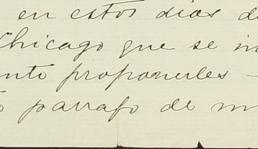 en estos dias d
Chicago que se in
nto proponerles -
o parrafo de m